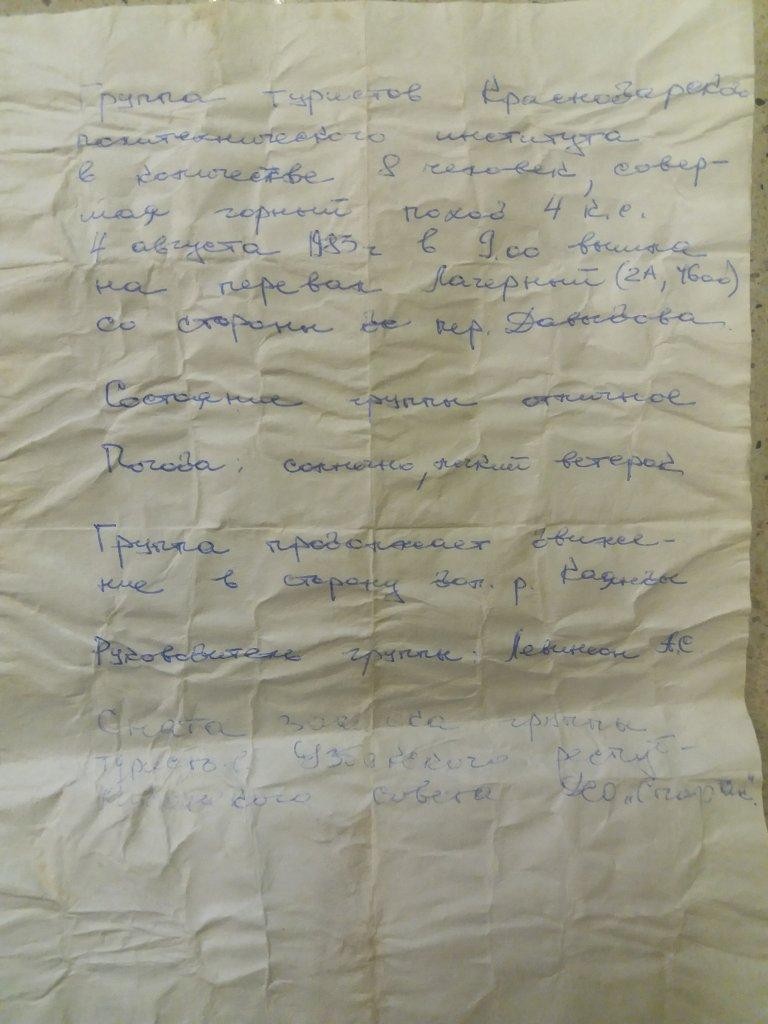 Группа туристов Краснодарского
политехнического института
в количестве 8 человек, совер-
шая горный поход 4 к.с.
4 августа 1983 г в 9.00 вышла
на перевал Лагерный (2А, 4600)
со стороны пер. Давыдова.
Состояние группы отличное
Погода: солнечно, легкий ветерок
Группа продолжает движе-
ние в сторону зап. р. Каинды
Руководитель группы: Левинсон А.С
Снята записка группы
туристов Узбекского респуб-
ликанского совета ДСО „Спартак".